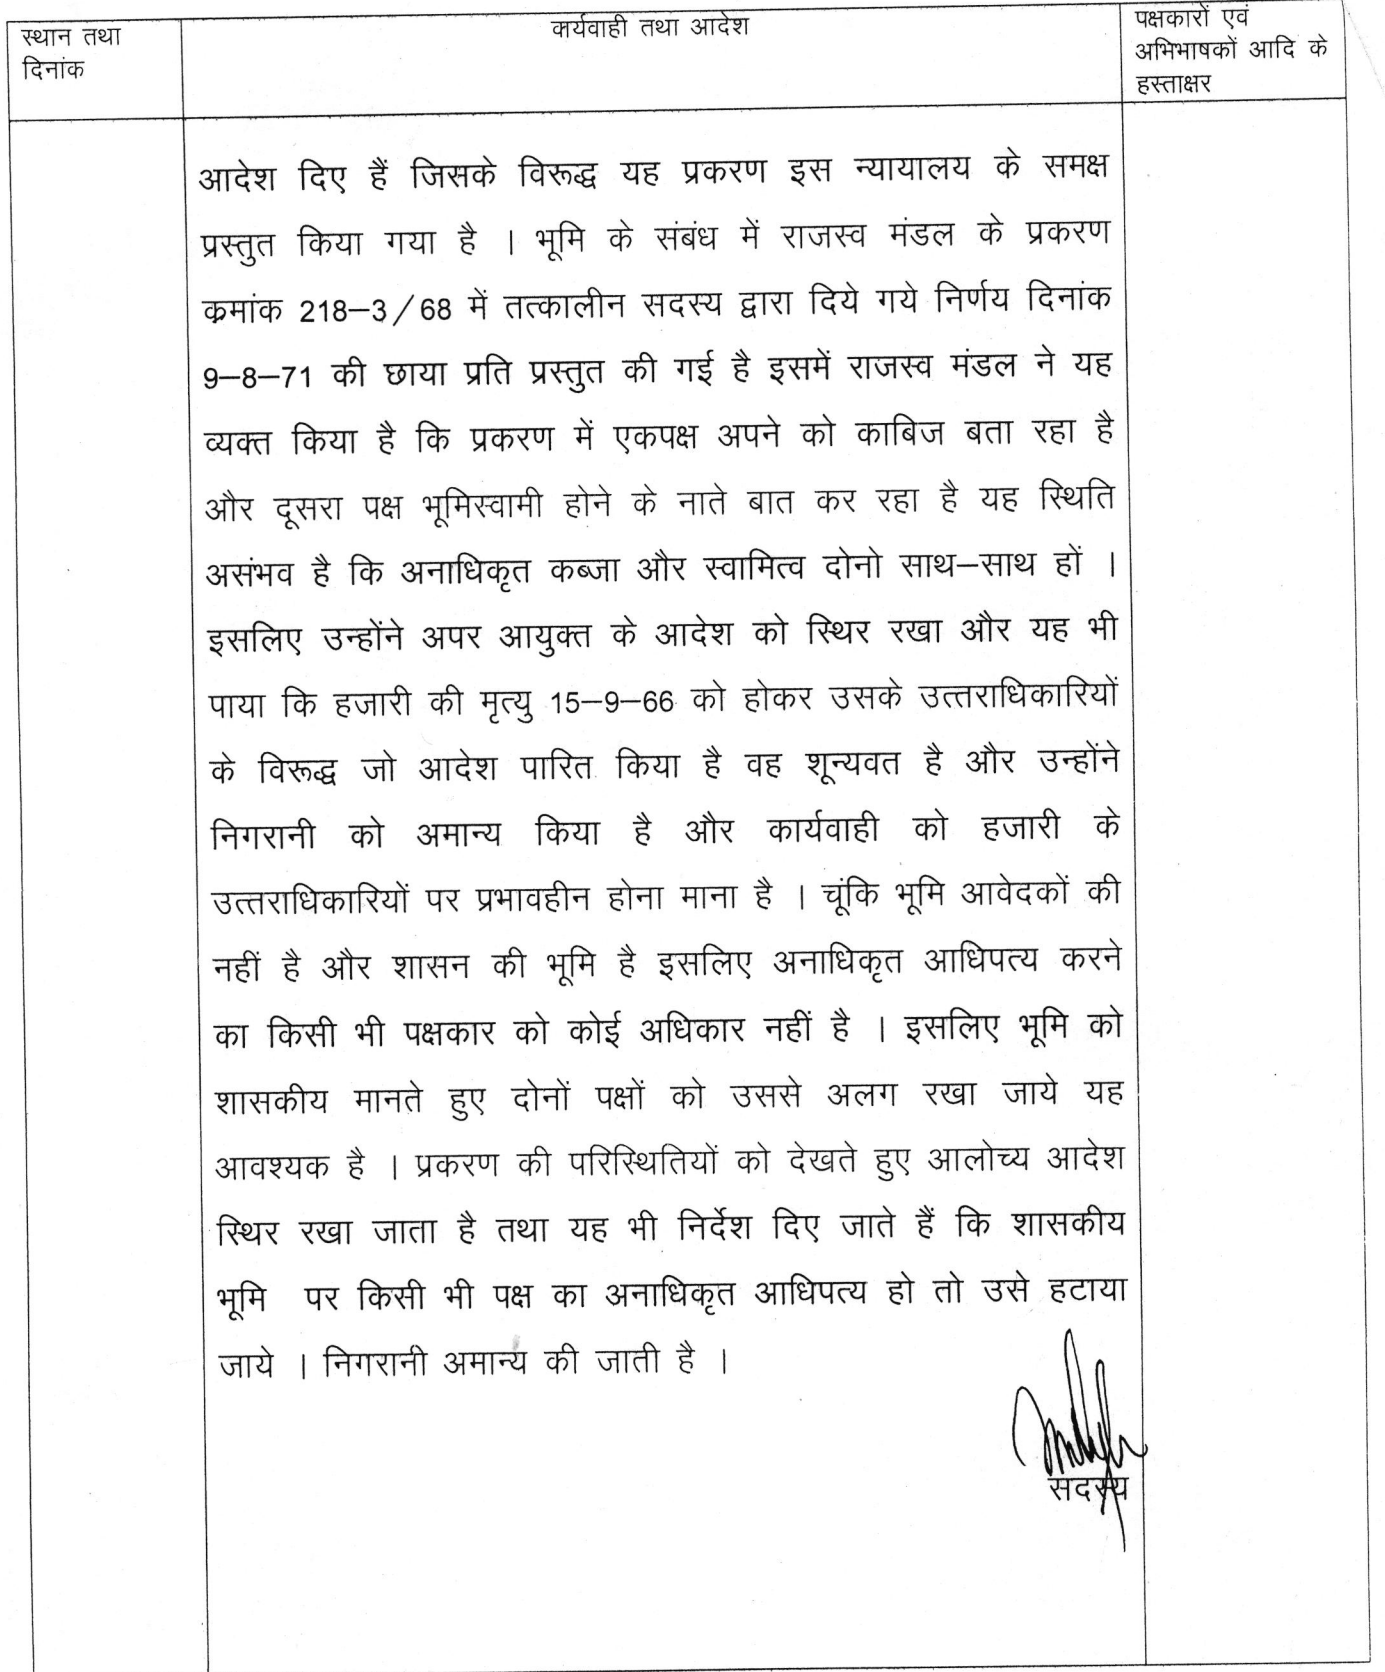 स्थान तथा
दिनांक
कार्यवाही तथा आदेश
पक्षकारों एवं
अभिभाषकों आदि के
हस्ताक्षर
आदेश दिए हैं जिसके विरूद्ध यह प्रकरण इस न्यायालय के समक्ष
प्रस्तुत किया गया है । भूमि के संबंध में राजस्व मंडल के प्रकरण
क्रमांक 218–3/68 में तत्कालीन सदस्य द्वारा दिये गये निर्णय दिनांक
9–8–71 की छाया प्रति प्रस्तुत की गई है इसमें राजस्व मंडल ने यह
व्यक्त किया है कि प्रकरण में एकपक्ष अपने को काबिज बता रहा है
और दूसरा पक्ष भूमिस्वामी होने के नाते बात कर रहा है यह स्थिति
असंभव है कि अनाधिकृत कब्जा और स्वामित्व दोनो साथ–साथ हों ।
इसलिए उन्होंने अपर आयुक्त के आदेश को स्थिर रखा और यह भी
पाया कि हजारी की मृत्यु 15–9–66 को होकर उसके उत्तराधिकारियों
के विरूद्ध जो आदेश पारित किया है वह शून्यवत है और उन्होंने
निगरानी को अमान्य किया है और कार्यवाही को हजारी के
उत्तराधिकारियों पर प्रभावहीन होना माना है । चूंकि भूमि आवेदकों की
नहीं है और शासन की भूमि है इसलिए अनाधिकृत आधिपत्य करने
का किसी भी पक्षकार को कोई अधिकार नहीं है । इसलिए भूमि को
शासकीय मानते हुए दोनों पक्षों को उससे अलग रखा जाये यह
आवश्यक है । प्रकरण की परिस्थितियों को देखते हुए आलोच्य आदेश
स्थिर रखा जाता है तथा यह भी निर्देश दिए जाते हैं कि शासकीय
भूमि पर किसी भी पक्ष का अनाधिकृत आधिपत्य हो तो उसे हटाया
जाये । निगरानी अमान्य की जाती है ।
सदस्य